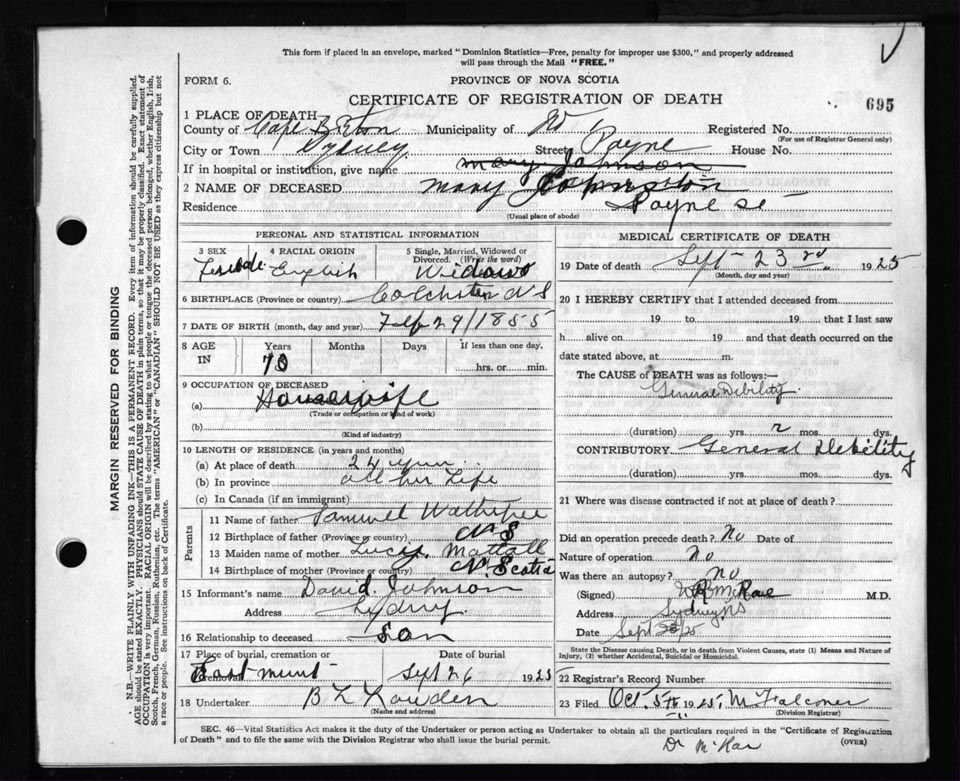 This form if placed in an envelope, marked "Dominion Statistics—Free, penalty for improper use $300," and properly addressed
will pass through the Mail "FREE."
FORM 6.
PROVINCE OF NOVA SCOTIA
CERTIFICATE OF REGISTRATION OF DEATH
695
1 PLACE OF DEATH
County of Cape Breton Municipality of Registered No.
(For use of Registrar General only)
City or Town Sydney Street Payne House No.
If in hospital or institution, give name Mary Johnson
2 NAME OF DECEASED Mary Johnston
Residence Payne St
(Usual place of abode)
PERSONAL AND STATISTICAL INFORMATION
3 SEX Female
4 RACIAL ORIGIN English
5 Single, Married, Widowed or
Divorced. (Write the word)
Widow
6 BIRTHPLACE (Province or country) Colchester N S
7 DATE OF BIRTH (month, day and year) Feb 29/1855
8 AGE IN Years 70 Months Days If less than one day,
hrs. or min.
9 OCCUPATION OF DECEASED
(a) Housewife
(Trade or occupation or kind of work)
(b)
(Kind of industry)
10 LENGTH OF RESIDENCE (in years and months)
(a) At place of death 24 years
(b) In province all her Life
(c) In Canada (if an immigrant)
Parents
11 Name of father Samuel
12 Birthplace of father (Province or country) N S
13 Maiden name of mother Lucy Mattall
14 Birthplace of mother (Province or country) N. Scotia
15 Informant's name David Johnson
Address Sydney
16 Relationship to deceased Son
17 Place of burial, cremation or
removal East mount
Date of burial
Sept 26 1925
18 Undertaker B L Rowden
(Name and address)
MEDICAL CERTIFICATE OF DEATH
19 Date of death Sept- 23rd 1925
(Month, day and year)
20 I HEREBY CERTIFY that I attended deceased from
19 to 19 that I last saw
h alive on 19 and that death occurred on the
date stated above, at m.
The CAUSE OF DEATH was as follows:—
General Debility
(duration) yrs. 2 mos. dys.
CONTRIBUTORY General Debility
(duration) yrs. mos. dys.
21 Where was disease contracted if not at place of death?
Did an operation precede death? No Date of
Nature of operation No
Was there an autopsy? no
(Signed) McRae M.D.
Address Sydney NS
Date Sept. /25
State the Disease causing Death, or in death from Violent Causes, state (1) Means and Nature of
Injury, (2) whether Accidental, Suicidal or Homicidal.
22 Registrar's Record Number
23 Filed Oct. 5th 1925. M Falconer
(Division Registrar)
SEC. 46—Vital Statistics Act makes it the duty of the Undertaker or person acting as Undertaker to obtain all the particulars required in the "Certificate of Registration
of Death" and to file the same with the Division Registrar who shall issue the burial permit.
(OVER)
Dr McRae
MARGIN RESERVED FOR BINDING
N.B.—WRITE PLAINLY WITH UNFADING INK—THIS IS A PERMANENT RECORD. Every item of information should be carefully supplied.
AGE should be stated EXACTLY. PHYSICIANS should STATE CAUSE OF DEATH in plain terms, so that it may be properly classified. Exact statement of
OCCUPATION is very important. RACIAL ORIGIN will be described by stating to what people or tongue the deceased person belonged, whether English, Irish,
Scotch, French, German, Russian, Ruthenian, etc. The terms "AMERICAN" or "CANADIAN" SHOULD NOT BE USED as they express citizenship but not
a race or people. See instructions on back of Certificate.